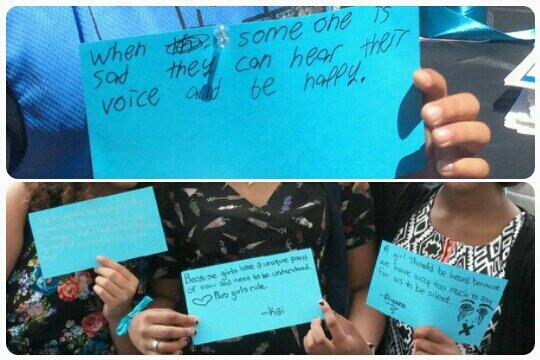 When some one is
sad they can hear their
voice and be happy.
Because girls have a unique point
of view and need to be understood.
Plus girls rule.
-Kai
A girl should be heard because
we have way too much to say
for us to be silent.